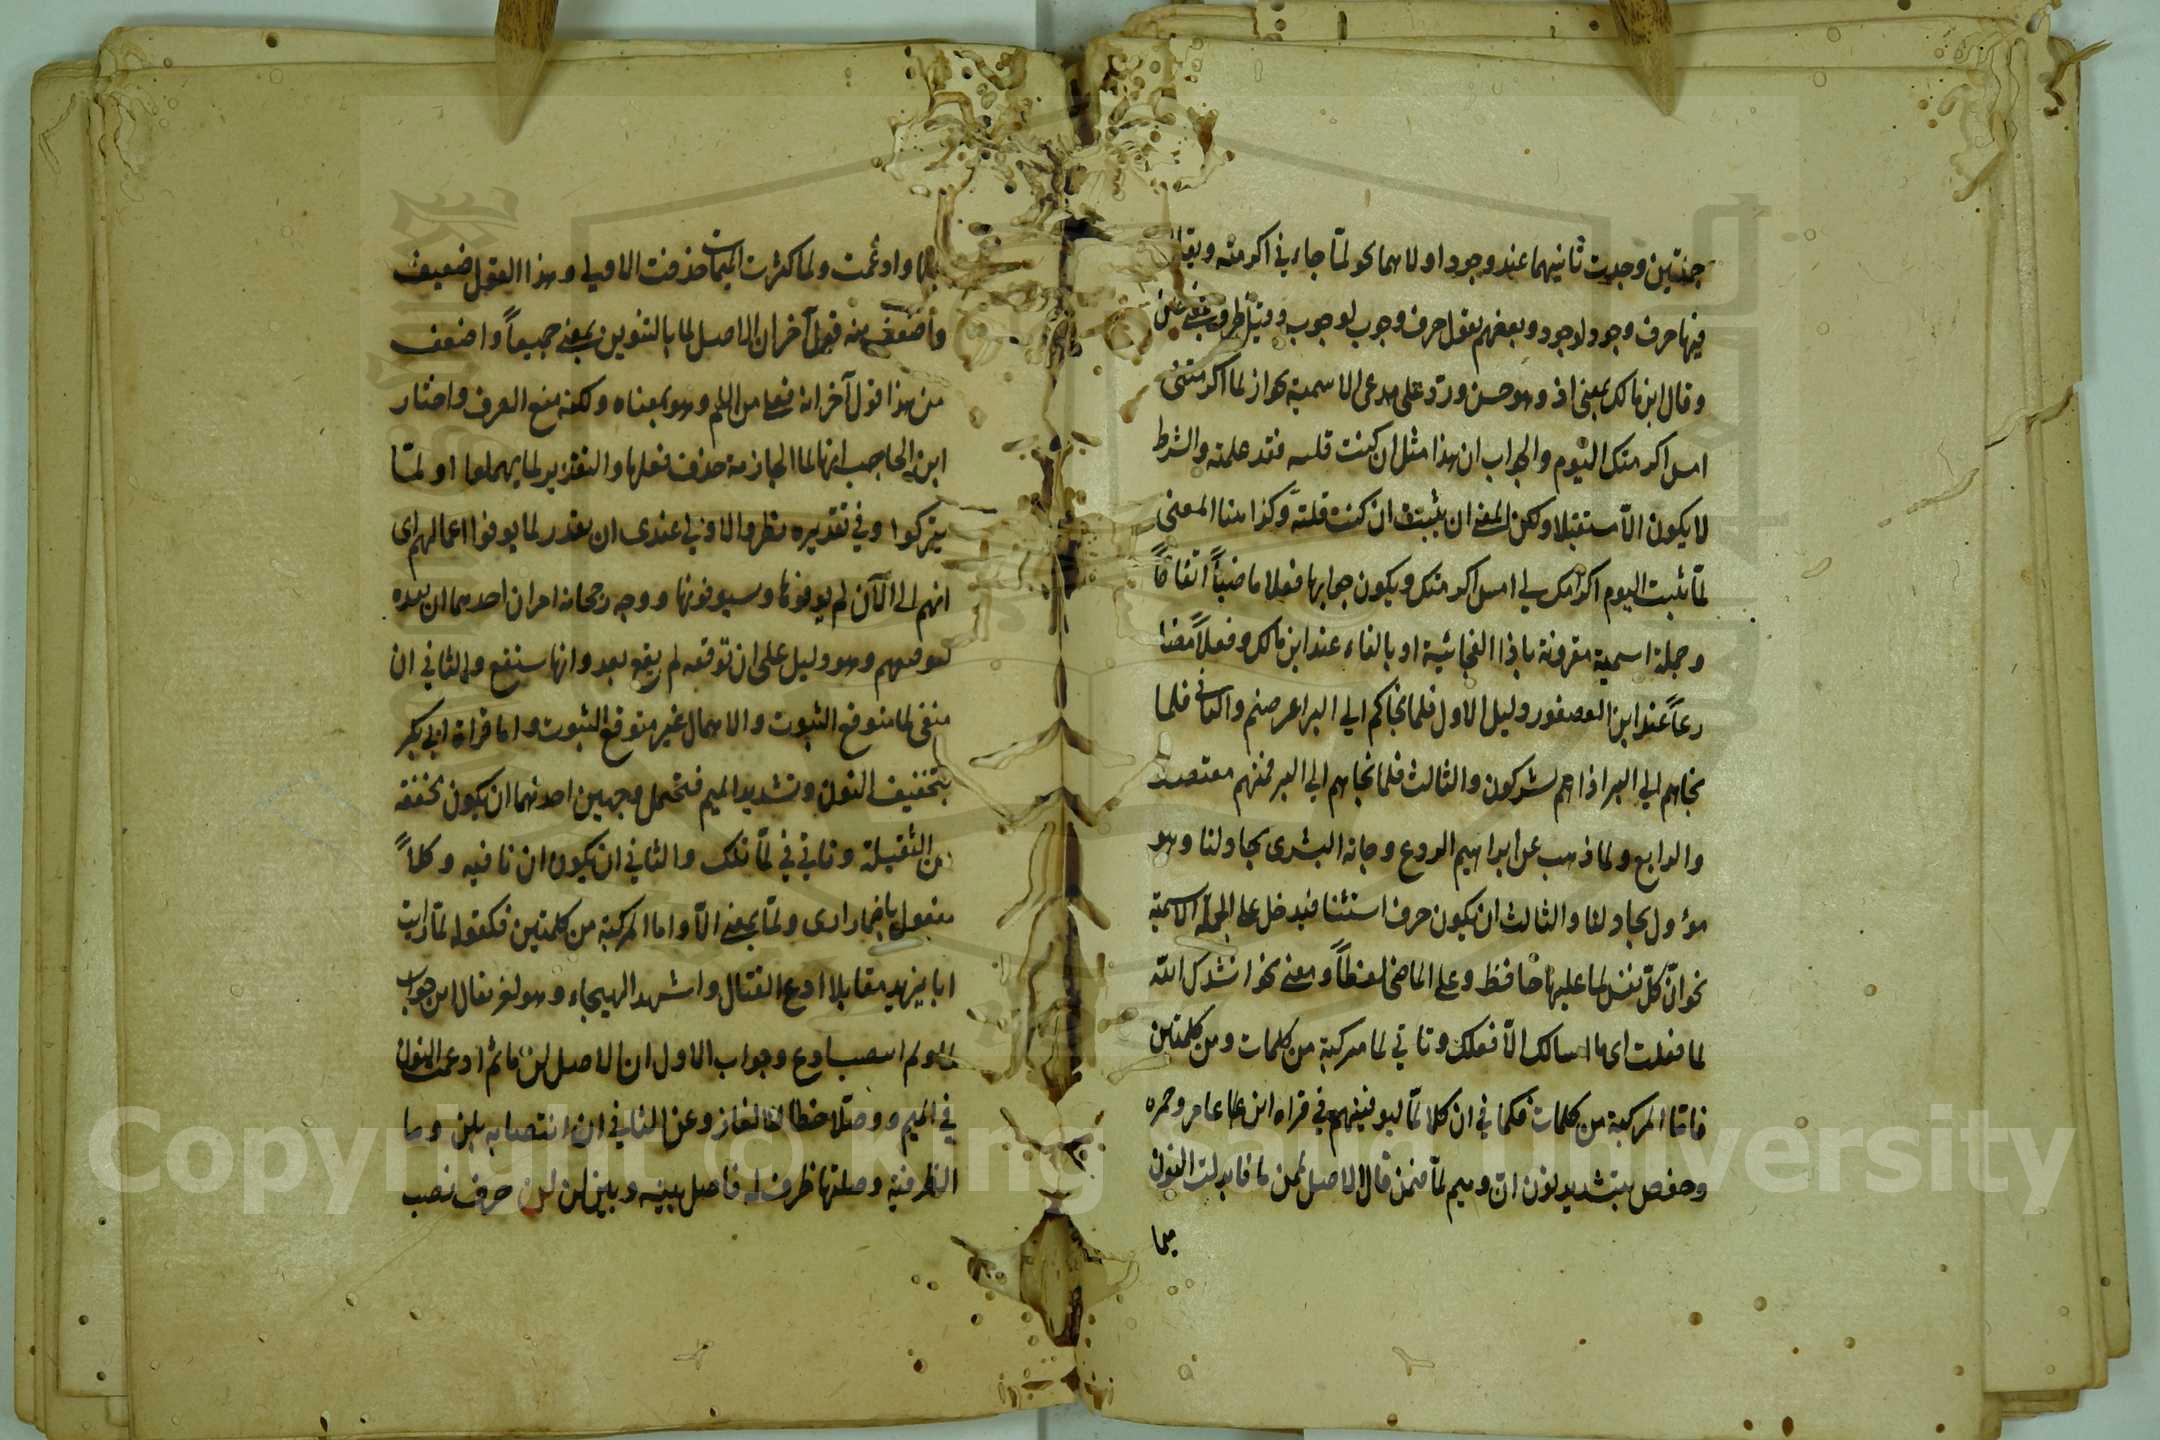 جملتين وجدت ثانيهما عند وجود اولاهما نحو لمّا جاءني اكرمته ويقال
فيها حرف وجود لوجود وبعضهم يقول حرف وجوب لوجوب وقيل ظرف بمعنى حين
وقال ابن مالك بمعنى اذ وهو حسن وردّ على مدعى الاسمية بجواز لما اكرمتنى
امس اكرمتك اليوم والجواب ان هذا مثل ان كنت قلته فقد علمته والشرط
لا يكون الّا مستقبلا ولكن المعنى ان يثبت ان كنت قلته وكذا هنا المعنى
لمّا ثبت اليوم اكرامك لي امس اكرمتك ويكون جوابها فعلا ماضياً اتفاقاً
وجملة اسمية مقرونة باذا الفجائية او بالفاء عند ابن مالك وفعلاً مضا
رعاً عند ابن العصفور دليل الاول فلما نجاكم الي البر اعرضتم والثانى فلما
نجاهم الي البر اذا هم يشركون والثالث فلما نجاهم الي البر فمنهم مقتصد
والرابع ولما ذهب عن ابراهيم الروع وجاته البشرى يجادلنا وهو
مؤول بجادلنا والثالث ان يكون حرف استثنا فيدخل على الجملة الاسمية
نحو انّ كلّ نفس لما عليها حافظ وعلى الماضى لفظاً ومعنى نحو انشدك اللّه
لما فعلت اى ما اسالك الّا فعلك وتاتي لما مركبة من كلمات ومن كلمتين
فامّا المركبة من كلمات فكما في ان كلا لمّا ليوفينهم في قراه ابن عامر وحمزه
وحفص بتشديد نون انّ وميم لمّا فمن قال الاصل لمن ما فابدلت النون
ميما
ميما وادغمت ولما كثرت الميمات حذفت الاولي وهذا القول ضعيف
واضعف منه قول آخر ان الاصل لما بالتنوين بمعنى جميعاً واضعف
من هذا قول آخر انه فعلى من اللم وهو بمعناه ولكنه منع الصرف واختار
ابن الحاجب انها لما الجازمة حذف فعلها والتقدير لما يهملوا او لمّا
يتركوا وفي تقديره نظر والاولي عندى ان يقدر لما يوفوا اعمالهم اى
انهم الي الآن لم يوفوها وسيوفونها ووجه رجحانه امران احدهما ان بعده
ليوفينهم وهو دليل على ان توقعه لم يقع بعد وانها ستقع والثاني ان
منفى لما متوقع الثبوت والاهمال غير متوقع الثبوت واما قراة ابي بكر
بتخفيف النون وتشديد الميم فتحتمل وجهين احدهما ان يكون مخففة
من الثقيلة وتاتي في لمّا تلك والثاني ان يكون ان نافيه وكلاً
مفعول باضمار ارى ولمّا بمعنى الّا واما المركبة من كلمتين فكقوله لمّا رايت
ابا يزيد مقابلا ادع القتال واشهد الهيجاء وهو لغز يقال اين جواب
لما وبم انتصب ادع وجواب الاول ان الاصل لن ما ثم ادغمت النون
في الميم ووصلّا خطا للالغاز وعن الثاني ان انتصابه بلن وما
الظرفية وصلتها ظرف له فاصل بينه وبين لن لن حرف نصب